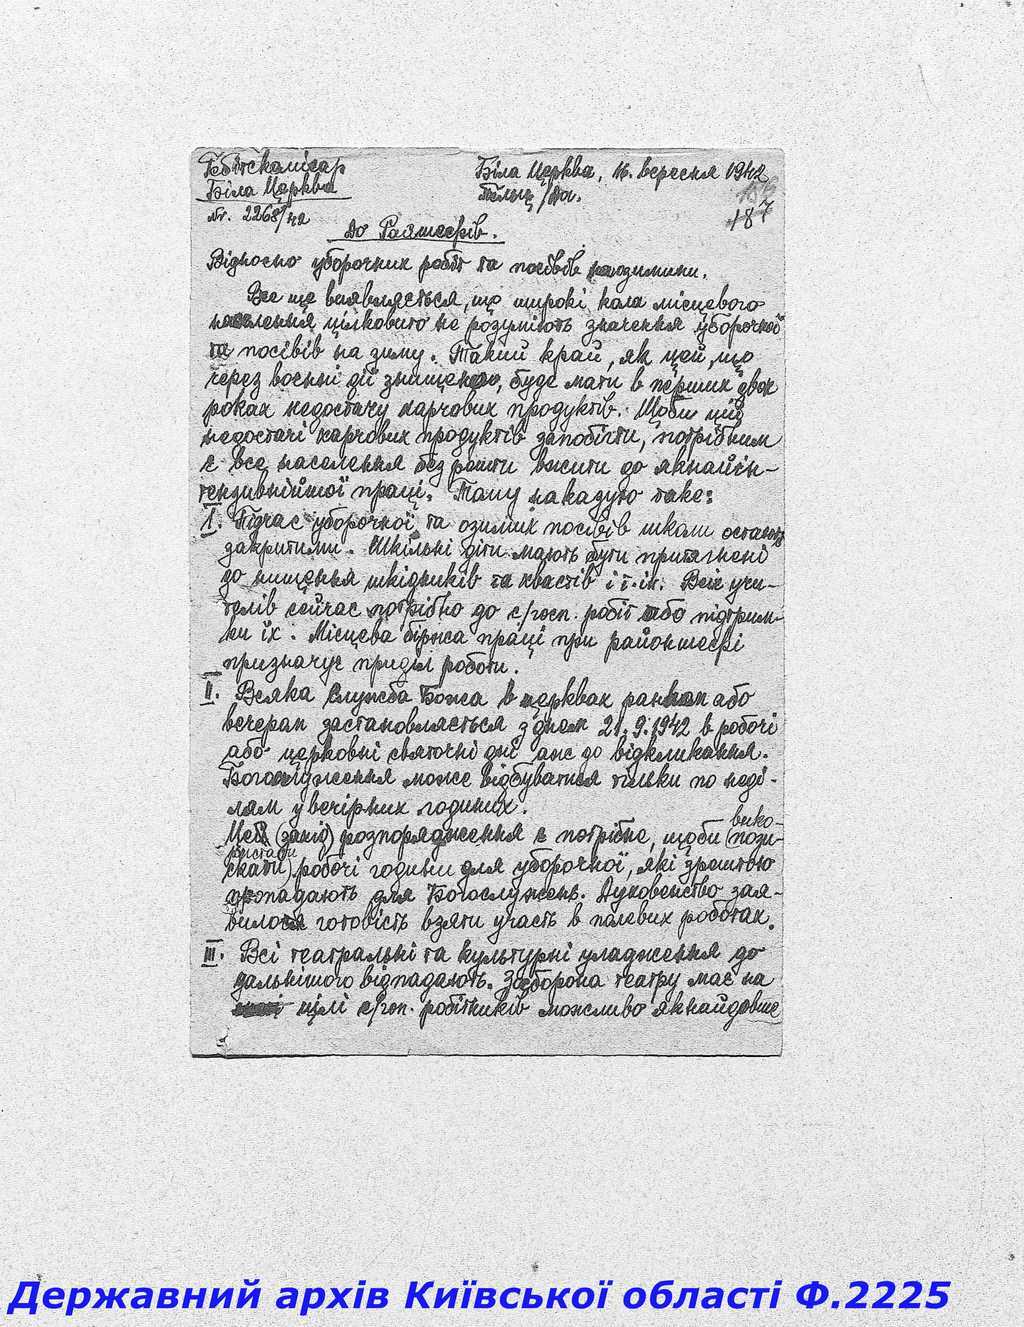 Гебітскомісар
Біла Церква
Nr. 2268/42
Біла Церква, 16. вересня 1942
187
До Райшефів.
Відносно уборочних робіт та посівів наозимини.
Все ще виявляється, що широкі кола місцевого
населення цілковито не розуміють значення уборочної
та посівів на зиму. Такий край, як цей, що
через воєнні дії знищено, буде мати в перших двох
роках недостачу харчових продуктів. Щоби цій
недостачі харчових продуктів запобігти, потрібним
є все населення без решти вжити до якнайін-
тензивнійшої праці. Тому наказую таке:
I. Підчас уборочної та озимих посівів школи остають
закритими. Шкільні діти мають бути притягнені
до нищення шкідників та хвастів і т.ін. Всіх учи-
телів сейчас потрібно до с/госп. робіт або підтрим-
ки їх. Місцева біржа праці при райошефі
призначує приділ роботи.
II. Всяка Служба Божа в церквах ранком або
вечерам застановляється з днем 21.9.1942 в робочі
або церковні святочні дні аж до відкликання.
Богослуження може відбуватися тільки по неді-
лям у вечірних годинах.
вико-
Цей (захід) розпорядження є потрібне, щоби (пози-
ристати
скати) робочі години для уборочної, які зрештою
пропадають для Богослужень. Духовенство зая-
вилося готовість взяти участь в полевих роботах.
III. Всі театральні та культурні уладження до
дальнішого відпадають. Заборона театру має на
цілі с/госп. робітників можливо якнайдовше
Державний архів Київської області Ф.2225